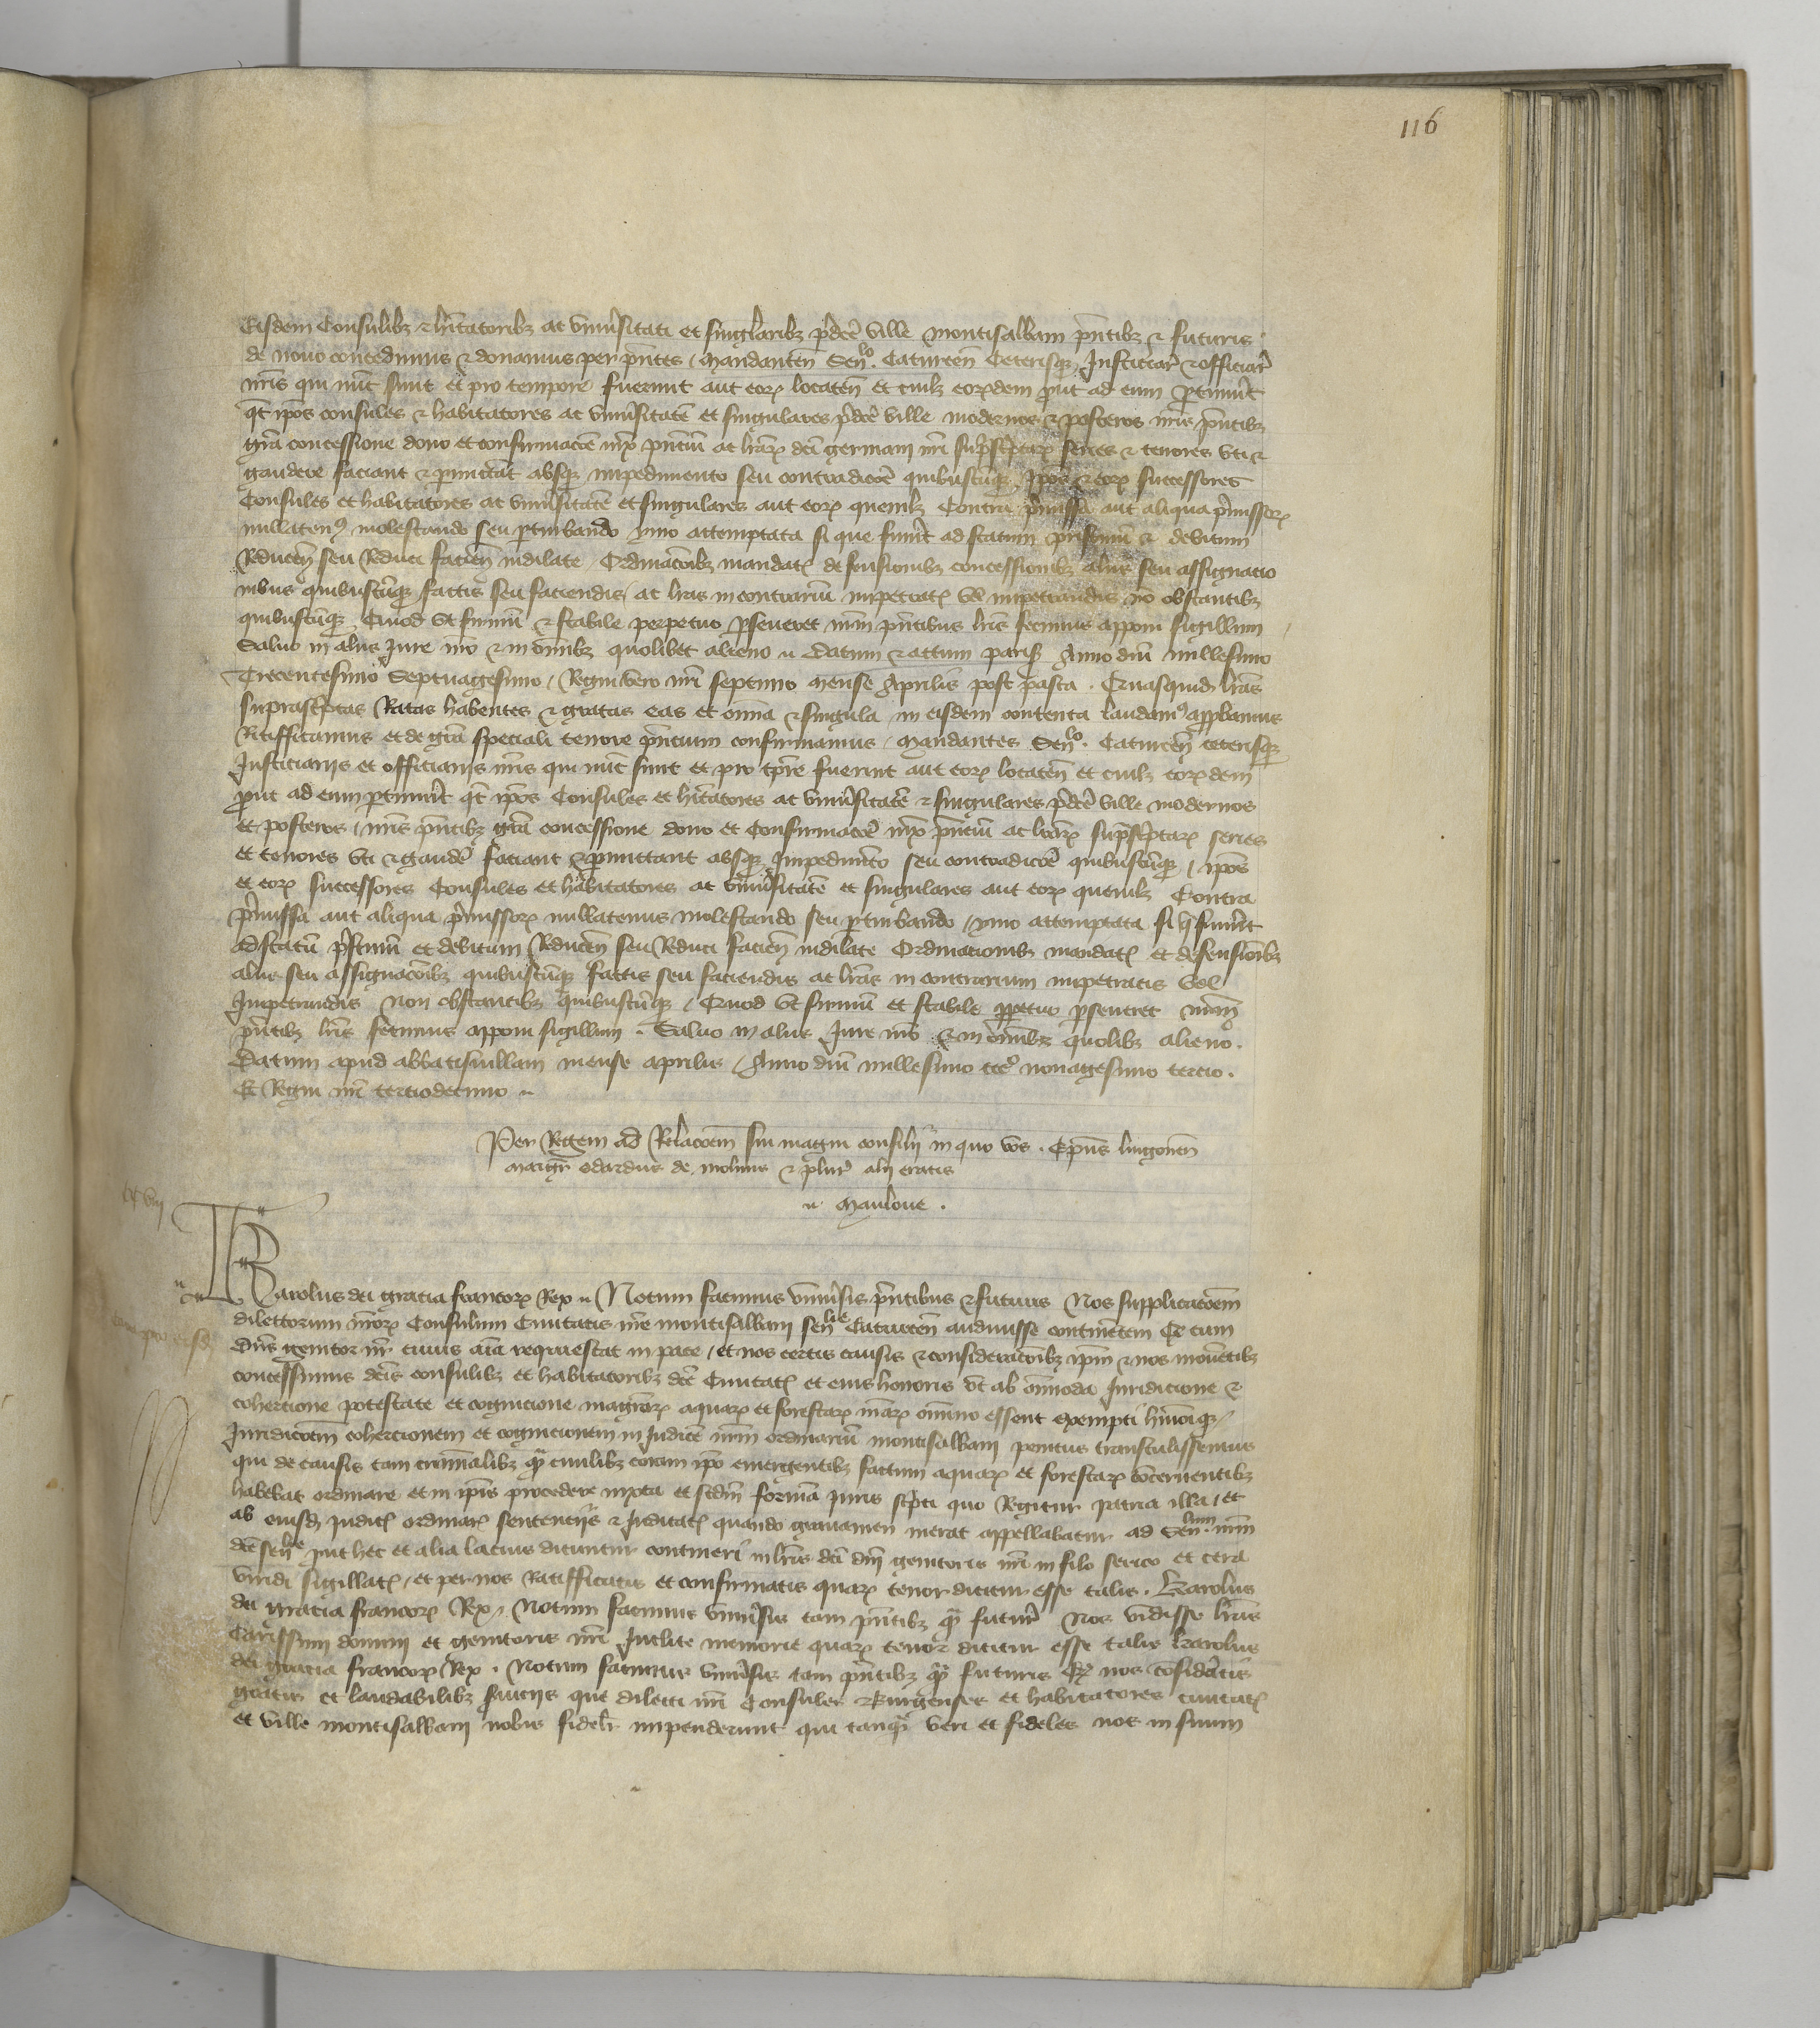 116
Eisdem Consulibz & hitatoribz ac univsitati et singlaribz pdce ville montisalbani pntibz & futuris
de novo concedimus & donamus per pntes / Mandanten Senlo. Caturcen Ceterisqz Justiciar & officiar
nris qui nuc sunt et pro tempore fuerint aut eorz locaten et cuilz eorzdem put ad eum ptinuit
qt ipos consules & habitatores ac univsitate et singulares pdce ville modernos & posteros nris pntibz
gra concessione dono et confirmacoe nrx pntiu ac lrarx dci germani nri suprascptarx series & tenores uti &
gaudere faciant & pmittat absqz impedimento seu contradicoe quibuscuqz ipos & eorx successores
Consules et habitatores ac univsitate et singulares aut eorx quemlz Contra pmissa aut aliqua pmissorx
nullaten9 molestando seu pturbando ymo attemptata si que fuint ad statum pristinu & debitum
Reducen seu Reduci facien indilate / Ordinacoibz mandatx defensionibz concessionibz aliis seu assignacio
nibus quibuscuqz factis seu faciendis / ac lras in contrariu impetratx vl impetrandis no obstantibz
quibuscuqz Quod ut firmu & stabile perpetuo pseveret nrm pntibus lris fecimus apponi sigillum
Salvo in aliis Jure nro & in oibz quolibet alieno .. Datum & actum paris Anno dni millesimo
Trecentesimo Septuagesimo / Regni vero nri septimo Mense Aprilis post pasca . Quasquid lras
suprascptas Ratas habentes & gratas eas et omia & singula in eisdem contenta laudam9 appbamus
Ratifficamus et de gra speciali tenore pntium confirmamus / Mandantes Senlo. Caturcen ceterisqz
Justiciariis et officiariis nris qui nuc sunt et pro tpre fuerint aut eorx locaten et cuilz eorxdem
put ad eum ptinuit qt ipos Consules et hitatores ac univsitate & singulares pdce ville modernos
et posteros / nris pntibz gra concessione dono et Confirmacoe nrx pntiu ac lrarx suprascptarx series
et tenores uti & gaude faciant & pmittant absqz Impedimto seu contradicoe quibuscuqz / ipos
et eorx successores Consules et habitatores ac univsitate et singulares aut eorx quemlz Contra
pmissa aut aliqua pmissorx nullatenus molestando seu pturbando / ymo attemptata si q fuint
ad statu pstinu et debitum Reducen seu Reduci facien indilate Ordinacionibz mandatx et defensioibz
aliis seu assignacoibz quibuscuqz factis seu faciendis ac lras in contrarium impetratis vel
Impetrandis non obstantibz quibuscuqz / Quod ut firmu et stabile ppetuo pseveret nrm
pntibz lris fecimus apponi sigillum . Salvo in aliis Jure nro & in oibz quolibz alieno .
Datum apud abbatisvillam mense aprilis / Anno dni millesimo ccco nonagesimo tercio .
Et Regni nri terciodecimo ..
Per Regem ad Relacoem sui magni consilii in quo vos . Epus lingonen
Magr Odardus de molinis & plur alii eratis
.. Maulone .
Karolus dei gracia francorx Rex .. Notum facimus univsis pntibus & futuris Nos supplicacoem
dilectorum nrorx Consulum Civitatis nre montisalbani senlie Caturcen audivisse continetem Qr cum
dns genitor nr cuius aia requiescat in pace / et nos certis causis & consideracoibz ipm & nos movetibz
concessimus dcis consulibz et habitatoribz dce Civitatx et eius honoris ut ab omimoda Juridicione &
cohercione potestate et cognicione magrorx aquarx et forestarx nrarx omino essent exempti huiusqz
Juridicoem cohercionem et cognicionem in Judice nrm ordinariu montisalbani penitus transtulissemus
qui de causis tam criminalibz qz civilibz coram ipo emergentibz factum aquarx et forestarx concernentibz
habebat ordinare et in ipis procedere iuxta et scdm forma iuris scpti quo Regitur patria illa / et
ab eiusd iudicx ordinarx sentenciis & iudicatx quando gravamen inerat appellabatur ad Senllum nrm
dce senlie put hec et alia lacius dicuntur contineri in lris dci dni genitoris nri in filo serico et cera
viridi sigillatx / et per nos Ratifficatis et confirmatis quarx tenor dicitur esse talis . Karolus
dei gracia francorx Rex / Notum facimus univsis tam pntibz qz futur Nos vidisse lras
Carissimi domini et genitoris nri Inclite memorie quarx tenor dicitur esse talis Karolus
dei gracia francorx Rex . Notum facimus univsis tam pntibz qz futuris Qz nos cosideratis
gratis et laudabilibz serviciis que dilecti nri Consules & Burgenses et habitatores civitatx
et ville montisalbani nobis fidelr impenderunt qui tanqz veri et fideles nos in suum